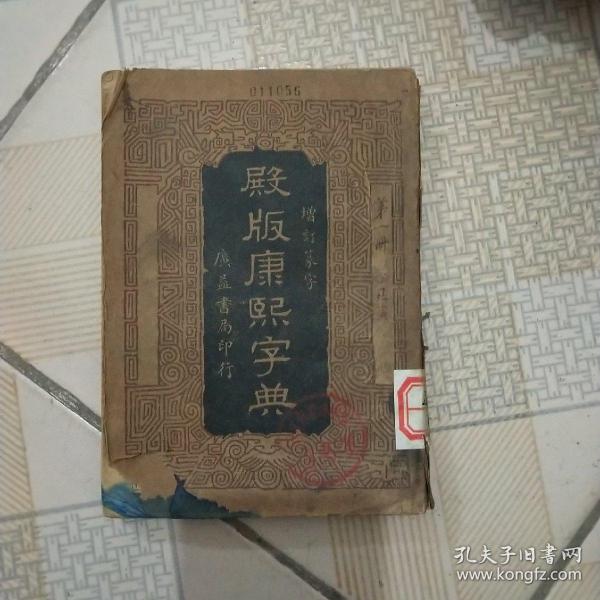 011056
增訂篆字
殿版康熙字典
廣益書局印行
第一冊
孔夫子旧书网
www.kongfz.com